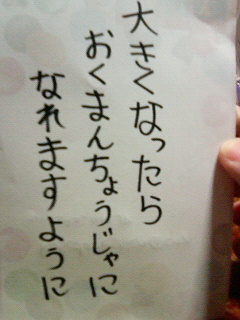 大きくなったら
おくまんちょうじゃに
なれますように